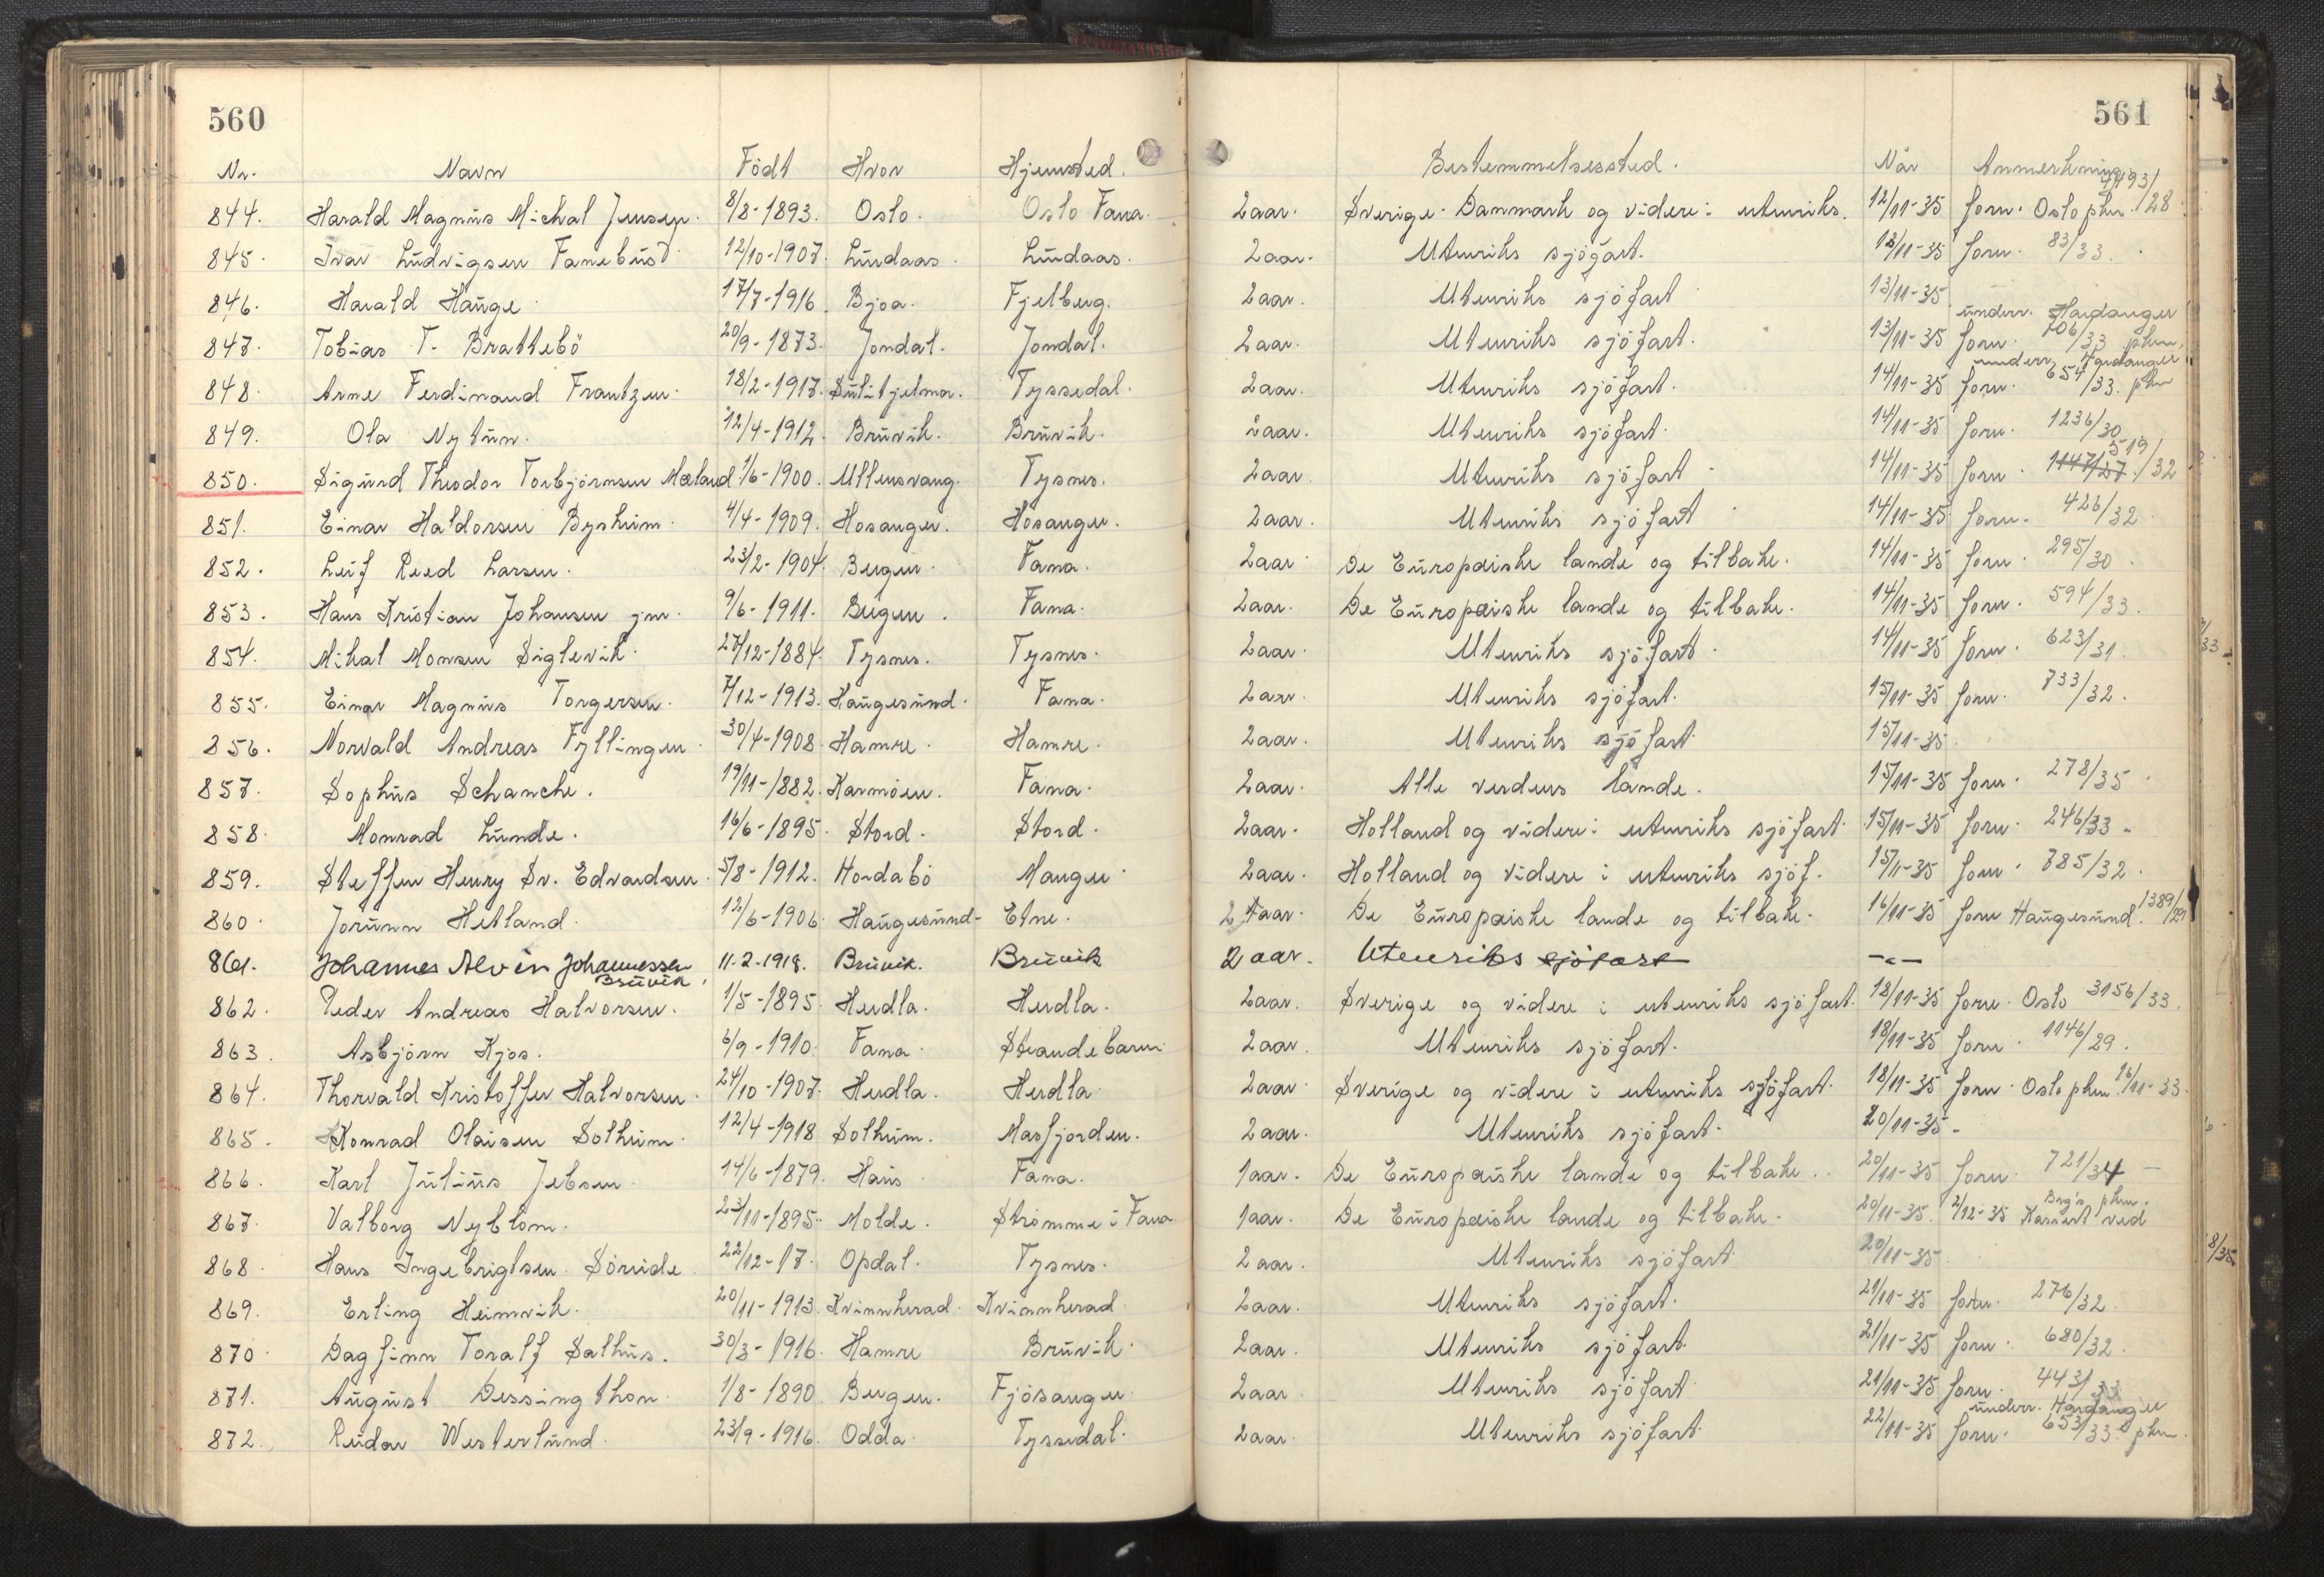 560
561
Nr. Navn Födt Hvor Hjemsted. Bestemmelsessted. Når Anmerkning
844. Harald Magnüs Michal Jensen. 8/8-1893. Oslo. Oslo Fana. 2 aar. Sverige. Danmark og videre i utenriks. 12/11-35 forn. Oslo phm. 4493/28
845. Ivar Lüdvigsen Fanebüst 12/10-1907. Lindaas. Lindaas. 2 aar. Utenriks sjöfart. 13/11-35 forn. 83/33.
846. Harald Haüge 17/7-1916. Bjoa. Fjelberg. 2 aar. Utenriks sjöfart 13/11-35
847. Tobias T. Brattebö 20/9-1873. Jondal. Jondal. 2 aar. Utenriks sjöfart. 13/11-35 forn. ünderr. Hardanger 706/33 phm.
848. Arne Ferdinand Frantzen. 18/2-1917. Sülitjelma. Tyssedal. 2 aar. Utenriks sjöfart. 14/11-35 forn. underr. Hardanger 654/33. phm
849. Ola Nytün. 12/4-1912. Brüvik. Brüvik. 2 aar. Utenriks sjöfart. 14/11-35 forn. 1236/30
850. Sigürd Theodor Torbjörnsen Mæland 1/6-1900. Ullensvang. Tysnes. 2 aar. Utenriks sjöfart 14/11-35 forn. 1147/27. 519/32
851. Einar Haldorsen Bysheim. 4/4-1909. Hosanger. Hosanger. 2 aar. Utenriks sjöfart 14/11-35 forn. 426/32
852. Leif Reed Larsen. 23/2-1904. Bergen. Fana. 2 aar De Eüropæiske lande og tilbake. 14/11-35 forn. 295/30.
853. Hans Kristian Johansen jnr. 9/6-1911. Bergen. Fana. 2 aar. De Eüropæiske lande og tilbake. 14/11-35 forn. 594/33.
854. Mikal Monsen Siglevik. 27/12-1884. Tysnes. Tysnes. 2 aar. Utenriks sjöfart. 14/11-35 forn. 623/31.
855. Einar Magnüs Torgersen. 7/12-1913. Haügesünd. Fana. 2 aar Utenriks sjöfart. 15/11-35 forn. 733/32.
856. Norvald Andreas Fyllingen. 30/4-1908. Hamre. Hamre. 2 aar. Utenriks sjöfart 15/11-35.
857. Sophüs Schanche. 19/11-1882. Karmöen. Fana. 2 aar. Alle verdens lande. 15/11-35 forn. 278/35.
858. Monrad Lünde. 16/6-1895. Stord. Stord. 2 aar. Holland og videre i utenriks sjöfart 15/11-35 forn. 246/33.
859. Steffen Henry Sv. Edvardsen. 5/8-1912. Hordabö Manger. 2 aar. Holland og videre i utenriks sjöf. 15/11-35 forn. 785/32.
860. Jorünn Hetland. 12/6-1906. Haügesünd- Etne. 2 aar. De Eüropæiske lande og tilbake. 16/11-35 forn Haügesünd. 1389/29
861. Johannes Alvin Johannessen Brüvik. 11.2.1918. Brüvik. Brüvik 2 aar. Utenriks sjöfart -"-
862. Peder Andreas Halvorsen. 1/5-1895. Herdla. Herdla. 2 aar. Sverige og videre i utenriks sjöfart. 18/11-35 forn. Oslo 3156/33.
863. Asbjörn Kjos. 6/9-1910. Fana. Strandebarm. 2 aar. Utenriks sjöfart. 18/11-35 forn. 1146/29.
864. Thorvald Kristoffer Halvorsen. 24/10-1907. Herdla. Herdla. 2 aar. Sverige og videre i utenriks sjöfart. 18/11-35 forn. Oslo phm. 16/11-33.
865. Konrad Olaisen Solheim. 12/4-1918 Solheim. Masfjorden. 2 aar. Utenriks sjöfart. 20/11-35-
866. Karl Jülüüs Jebsen. 14/6-1879. Haüs Fana. 1 aar. De Eüropæiske lande og tilbake. 20/11-35 forn. 721/34 -
867. Valborg Nyblom. 23/11-1895. Molde. Strömme i Fana 1 aar. De Eüropæiske lande og tilbake. 20/11-35. 2/12-35 Kassert ved Brg's phm.
868. Hans Ingebrigtsen Söreide 22/12-17. Opdal. Tysnes. 2 aar. Utenriks sjöfart 20/11-35
869. Erling Heimvik. 20/11-1913. Kvinnherad. Kvinnherad. 2 aar. Utenriks sjöfart. 21/11-35 forn. 276/32.
870. Dagfinn Toralf Salhüs. 30/3-1916. Hamre Brüvik. 2 aar. Utenriks sjöfart. 21/11-35 forn. 680/32.
871. Aügüst Dessingthon. 1/8-1890. Bergen. Fjösanger 2 aar Utenriks sjöfart 21/11-35 forn. 443/33
872. Reidar Westerlünd. 23/9-1916. Odda. Tyssedal. 2 aar. Utenriks sjöfart. 22/11-35 forn. ünderr. Hardanger 653/33. phm.